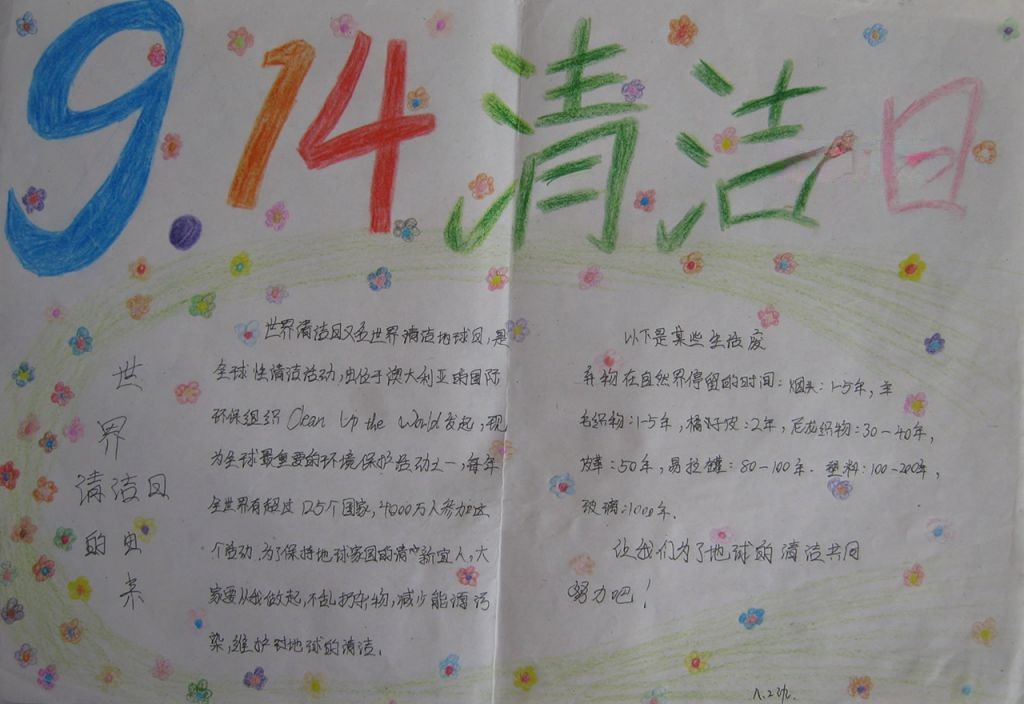 9.14清洁日
世
界
清洁日
的由
来
世界清洁日又名世界清洁地球日,是
全球性清洁活动,由位于澳大利亚的国际
环保组织 Clean Up the World 发起,现
为全球最重要的环境保护活动之一,每年
全世界有超过125个国家,4000万人参加这
个活动.为了保持地球家园的清新宜人,大
家要从我做起,不乱扔弃物,减少能源污
染,维护对地球的清洁.
以下是某些生活废
弃物在自然界停留的时间:烟头:1-5年,羊
毛织物:1-5年,橘子皮:2年,尼龙织物:30-40年,
皮革:50年,易拉罐:80-100年.塑料:100-200年,
玻璃:1000年.
让我们为了地球的清洁共同
努力吧!
八.2班.